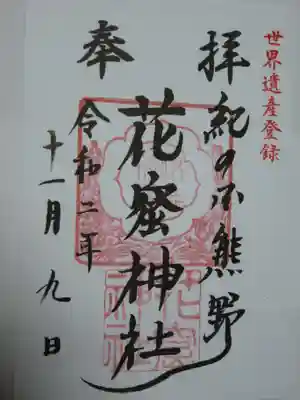 世界遺産登録
奉拝
紀の国熊野
花窟神社
令和二年
十一月九日